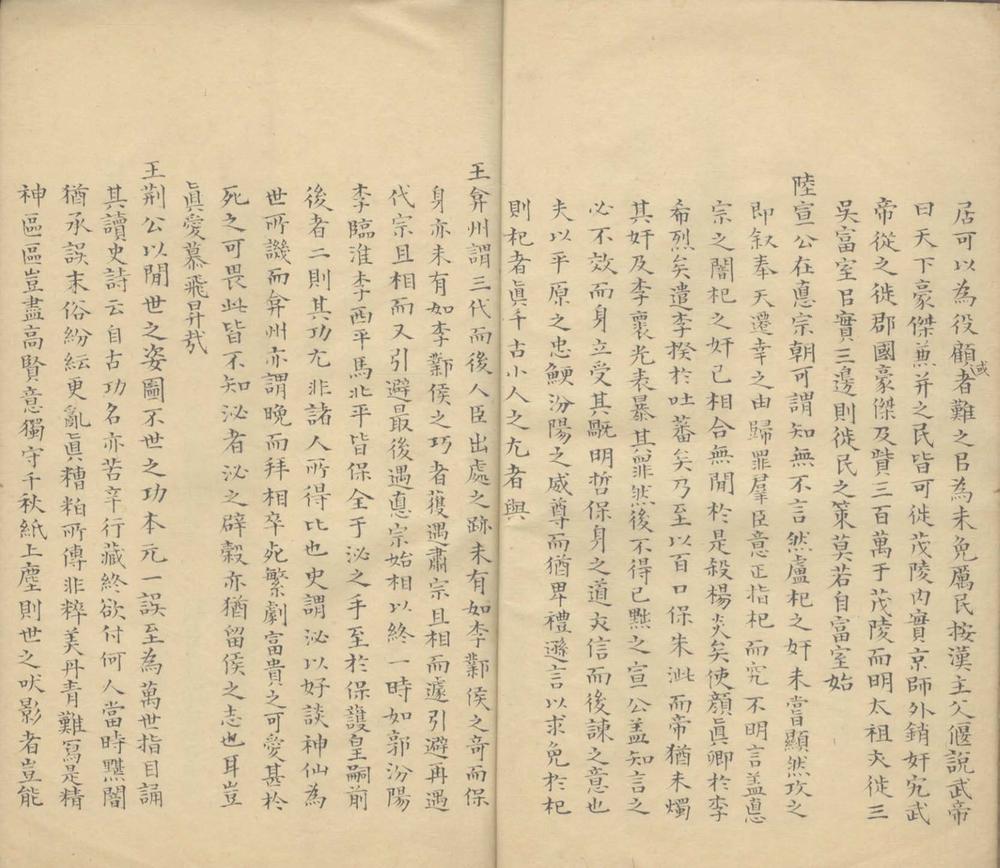 居可以為役顧者難之或㠯為未免厲民按漢主父偃說武帝
曰天下豪傑兼并之民皆可徙茂陵內實京師外銷奸宄武
帝從之徙郡國豪傑及貲三百萬于茂陵而明太祖夫徙三
吳富室㠯實三邊則徙民之策莫若自富室始
陸宣公在悳宗朝可謂知無不言然盧杞之奸未嘗顯然攻之
即叙奉天遷幸之由歸罪羣臣意正指杞而究不明言盖悳
宗之闇杞之奸已相合無閒於是殺楊炎矣使顏眞卿於李
希烈矣遣李揆於吐蕃矣乃至以百口保朱泚而帝猶未燭
其奸及李褱光表暴其辠然後不得已黜之宣公盖知言之
必不效而身立受其戲明哲保身之道夫信而後諫之意也
夫以平原之忠鯁汾陽之威尊而猶畀禮遜言以求免於杞
則杞者眞千古小人之尤者與
王弇州謂三代而後人臣出處之跡未有如李鄴侯之奇而保
身亦未有如李鄴侯之巧者蒦遇肅宗且相而遽引避再遇
代宗且相而又引避最後遇悳宗始相以終一時如郭汾陽
李臨淮李西平馬北平皆保全于泌之手至於保護皇嗣前
後者二則其功尤非諸人所得比也史謂泌以好談神仙為
世所譏而弇州亦謂晚而拜相卒死繁劇富貴之可愛甚於
死之可畏此皆不知泌者泌之辟穀亦猶留侯之志也耳豈
眞愛慕飛昇哉
王荆公以閒世之姿圖不世之功本元一誤至為萬世指目誦
其讀史詩云自古功名亦苦辛行藏終欲付何人當時黮闇
猶承誤末俗紛紜更亂眞糟粕所傳非粹美丹青難寫是精
神區區豈盡高賢意獨守千秋紙上塵則世之吠影者豈能